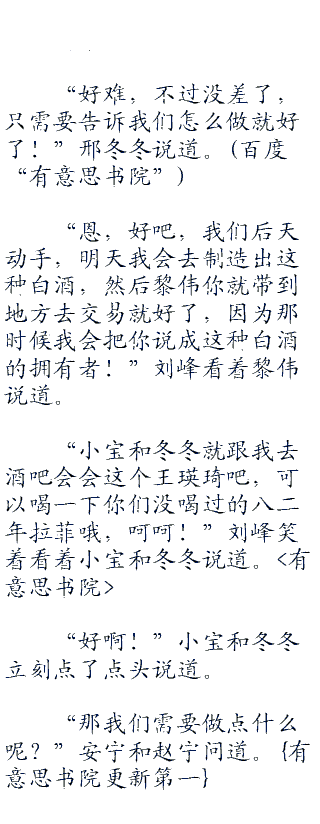 “好难，不过没差了，
只需要告诉我们怎么做就好
了！”邢冬冬说道。(百度
“有意思书院”)
“恩，好吧，我们后天
动手，明天我会去制造出这
种白酒，然后后黎伟你就带到
地方去交易就好了，因为那
时候我会把你说成这种白酒
的拥有者！”刘峰看着黎伟
说道。
“小宝和冬冬就跟我去
酒吧会会这个王瑛琦吧，可
以喝一下你们没喝过的八二
年拉菲哦，呵呵！”刘峰笑
着看着小宝和冬冬说道。<有
意思书院>
“好啊！”小宝和冬冬
立刻点了点头说道。
“那我们需要做点什么
呢？”安宁和赵宁问道。{有
意思书院更新第一}